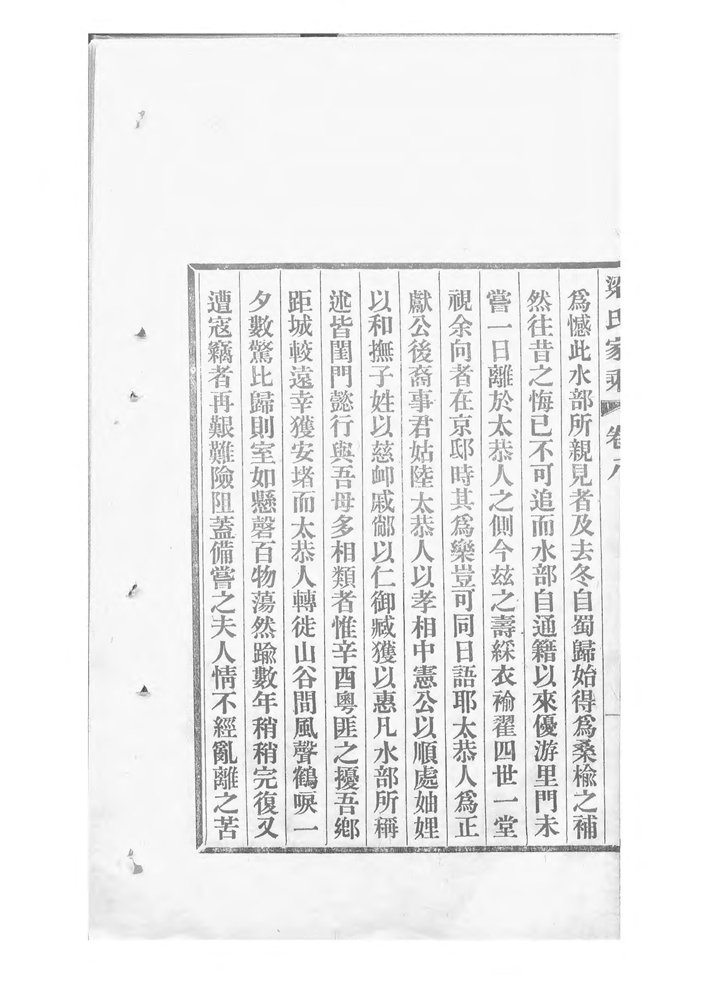 梁氏家乘 卷八
為憾此水部所親見者及去冬自蜀歸始得為桑榆之補
然往昔之悔已不可追而水部自通籍以來優游里門未
嘗一日離於太恭人之側今玆之壽綵衣褕翟四世一堂
視余向者在京邸時其為樂豈可同日語耶太恭人為正
獻公後裔事君姑陸太恭人以孝相中憲公以順處妯娌
以和撫子姓以慈卹戚鄰以仁御臧獲以惠凡水部所稱
述皆閨門懿行與吾母多相類者惟辛酉粵匪之擾吾鄉
距城較遠幸獲安堵而太恭人轉徙山谷間風聲鶴唳一
夕數驚比歸則室如懸磬百物蕩然踰數年稍稍完復又
遭寇竊者再艱難險阻蓋備嘗之夫人情不經亂離之苦